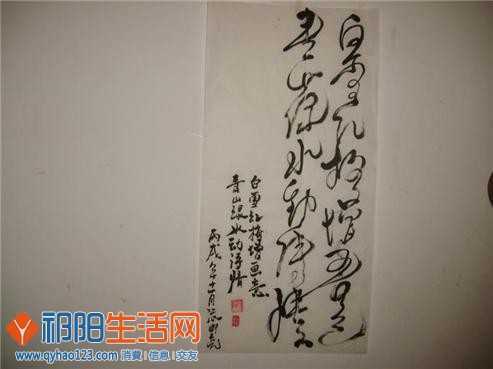 白雪紅梅增畫意
青山綠水動詩情
白雪红梅增画意
青山绿水动诗情
丙戌年十一月
祁阳生活网
www.qyhao123.com 消费 | 信息 | 交友